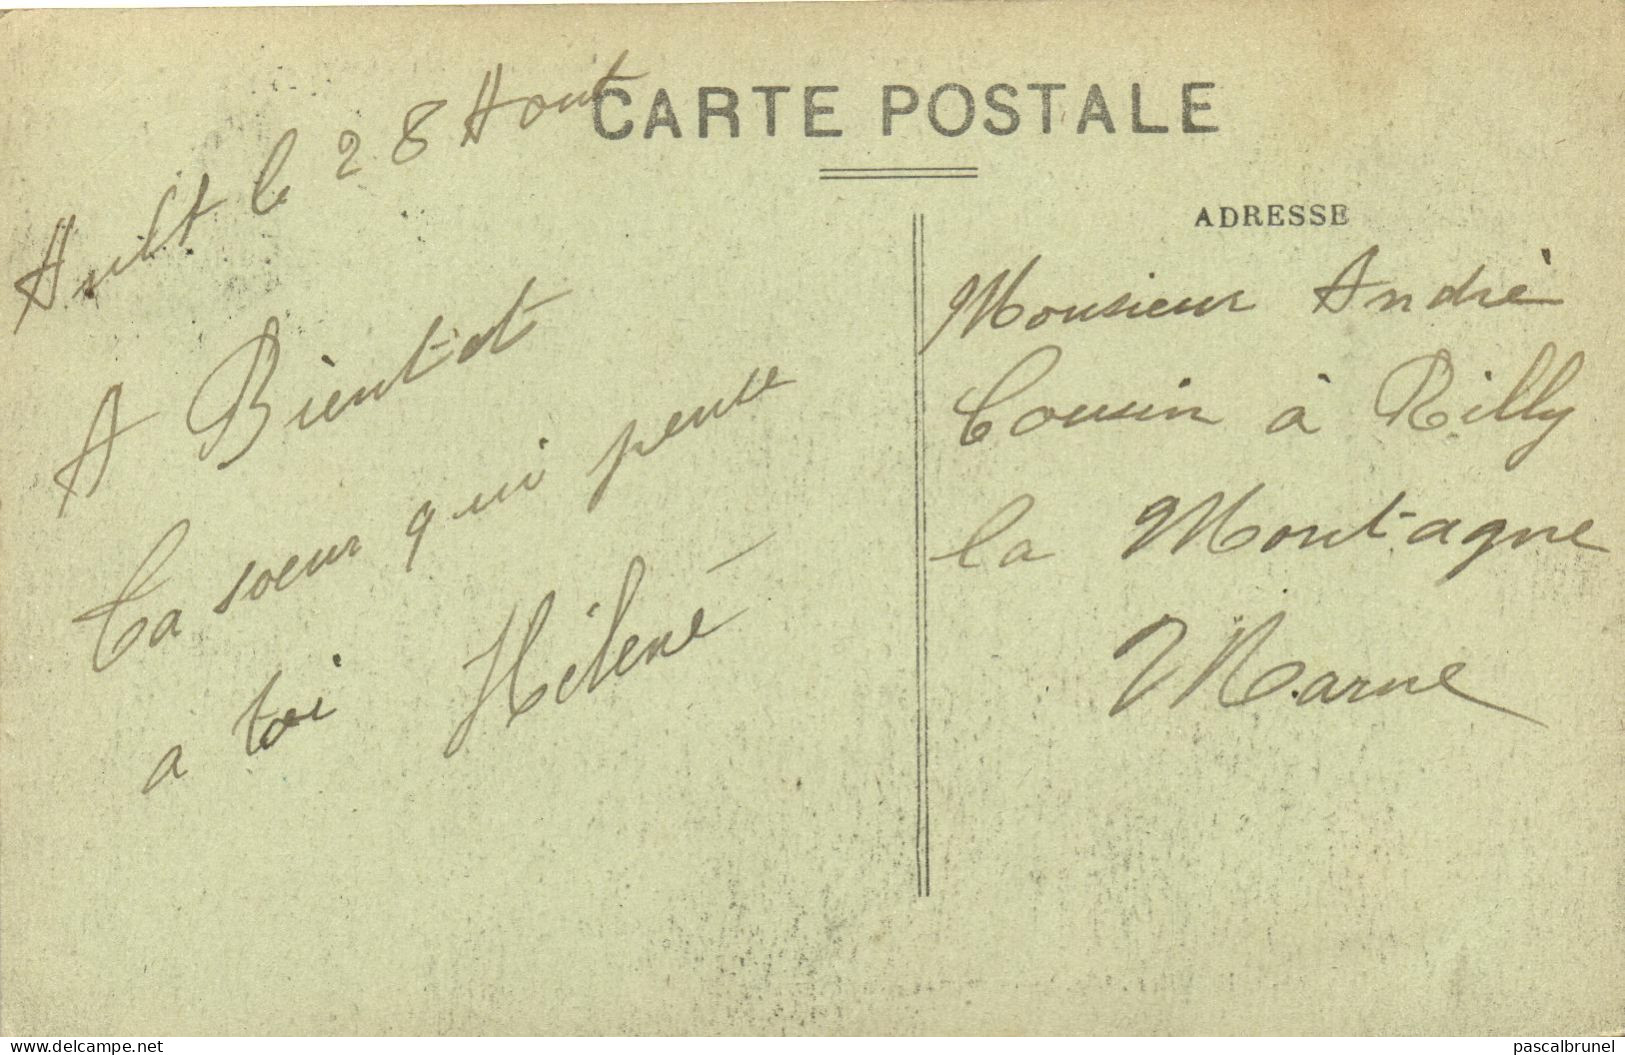 CARTE POSTALE
Ault le 28 Aout
A Bientot
Ta soeur qui pense
a toi Hélène
ADRESSE
Monsieur André
Cousin à Rilly
la Montagne
Marne
www.delcampe.net
pascalbrunel